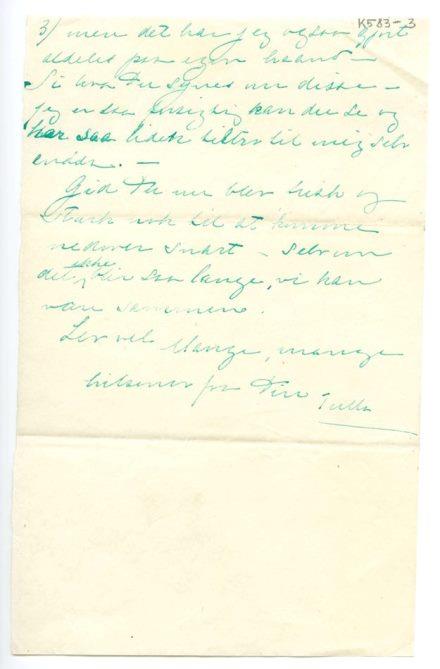 K583-3
3/ men det har jeg ogsaa gjort
aldeles paa egen haand –
Si hva Du synes om disse –
jeg er saa forsigtig kan du se og
har saa lidet tiltro til mig selv
endda. –
Gid Du nu blev frisk og
sterk nok til at komme
nedover snart – selv om
det ikke blir saa lange, vi kan
være sammen.
Lev vel. Mange, mange
hilsener fra Din
Tulla